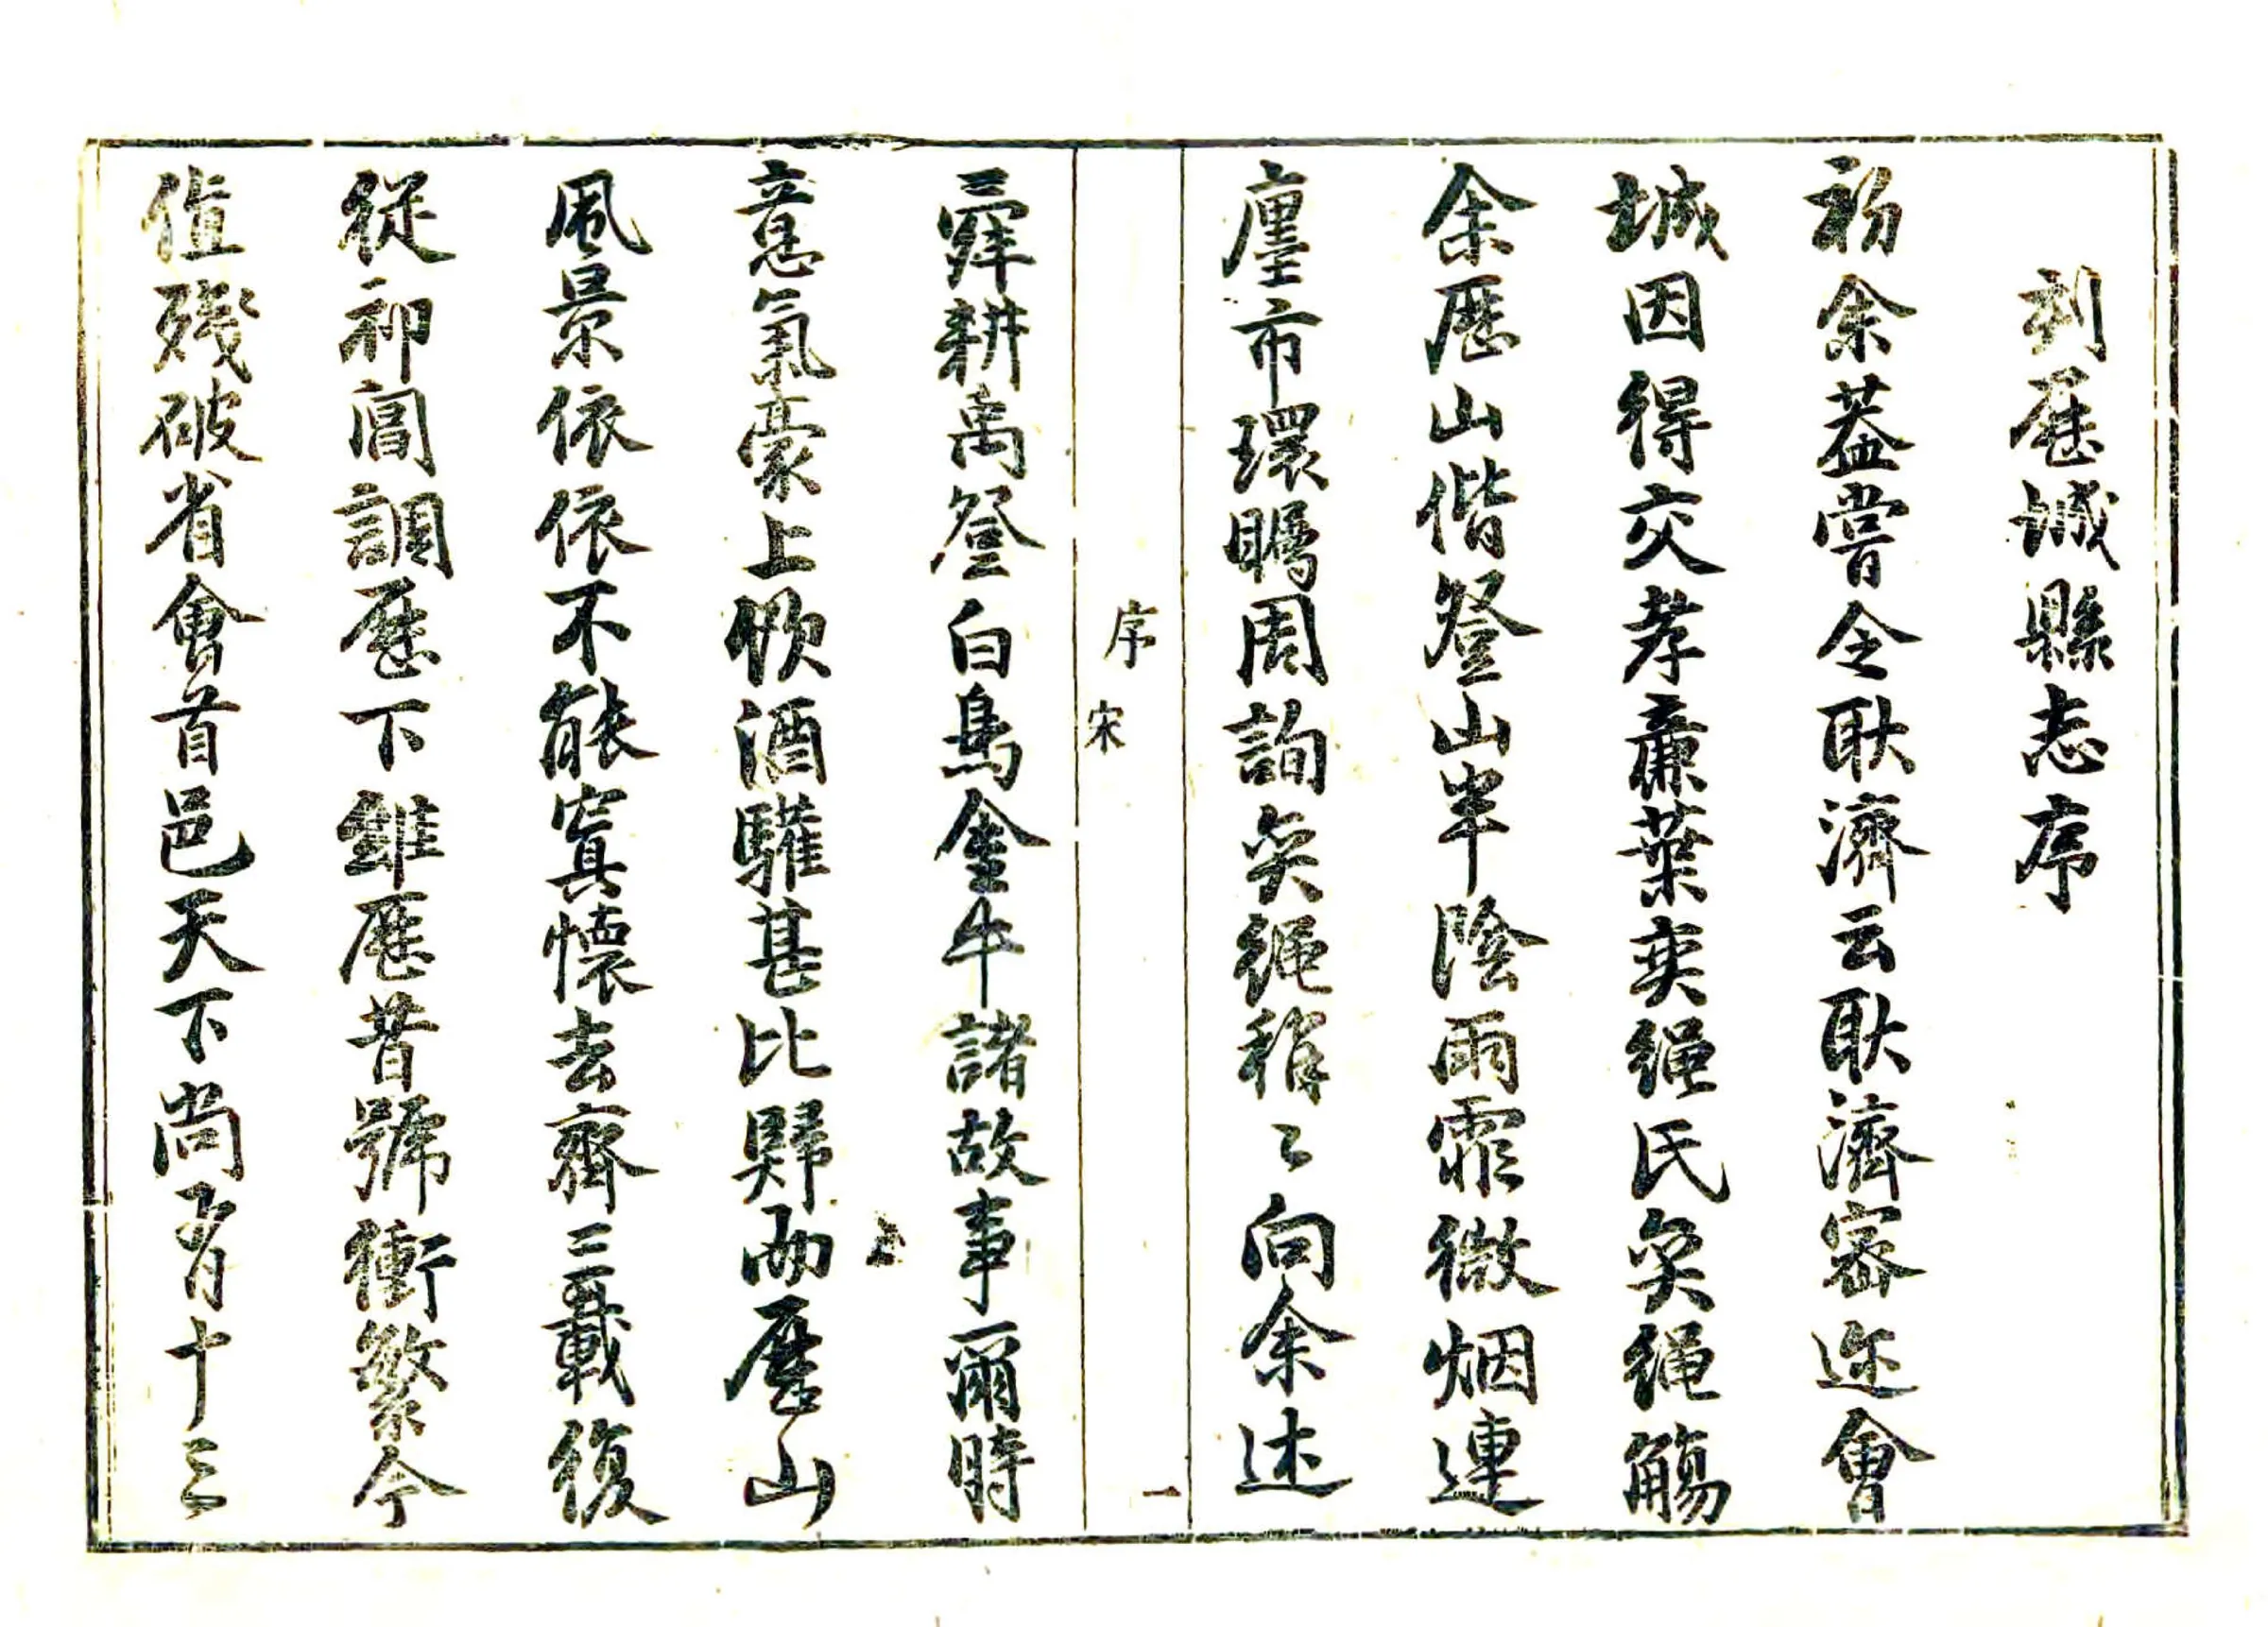 刻歷城縣志序
初余葢嘗令耿濟云耿濟密迩會
城因得交孝廉葉奕绳氏奕绳觴
余歷山偕登山半陰雨霏微烟連
廛市環矚周詢奕绳稱〻向余述
舜耕禹登白鳥金牛諸故事爾時
意氣豪上飲酒驩甚比歸而歷山
風景依依不能寘懷去齊三載復
從祁閶調歷下雖歷昔號衝繁今
值殘破省會首邑天下尚有十三
序
宋
一